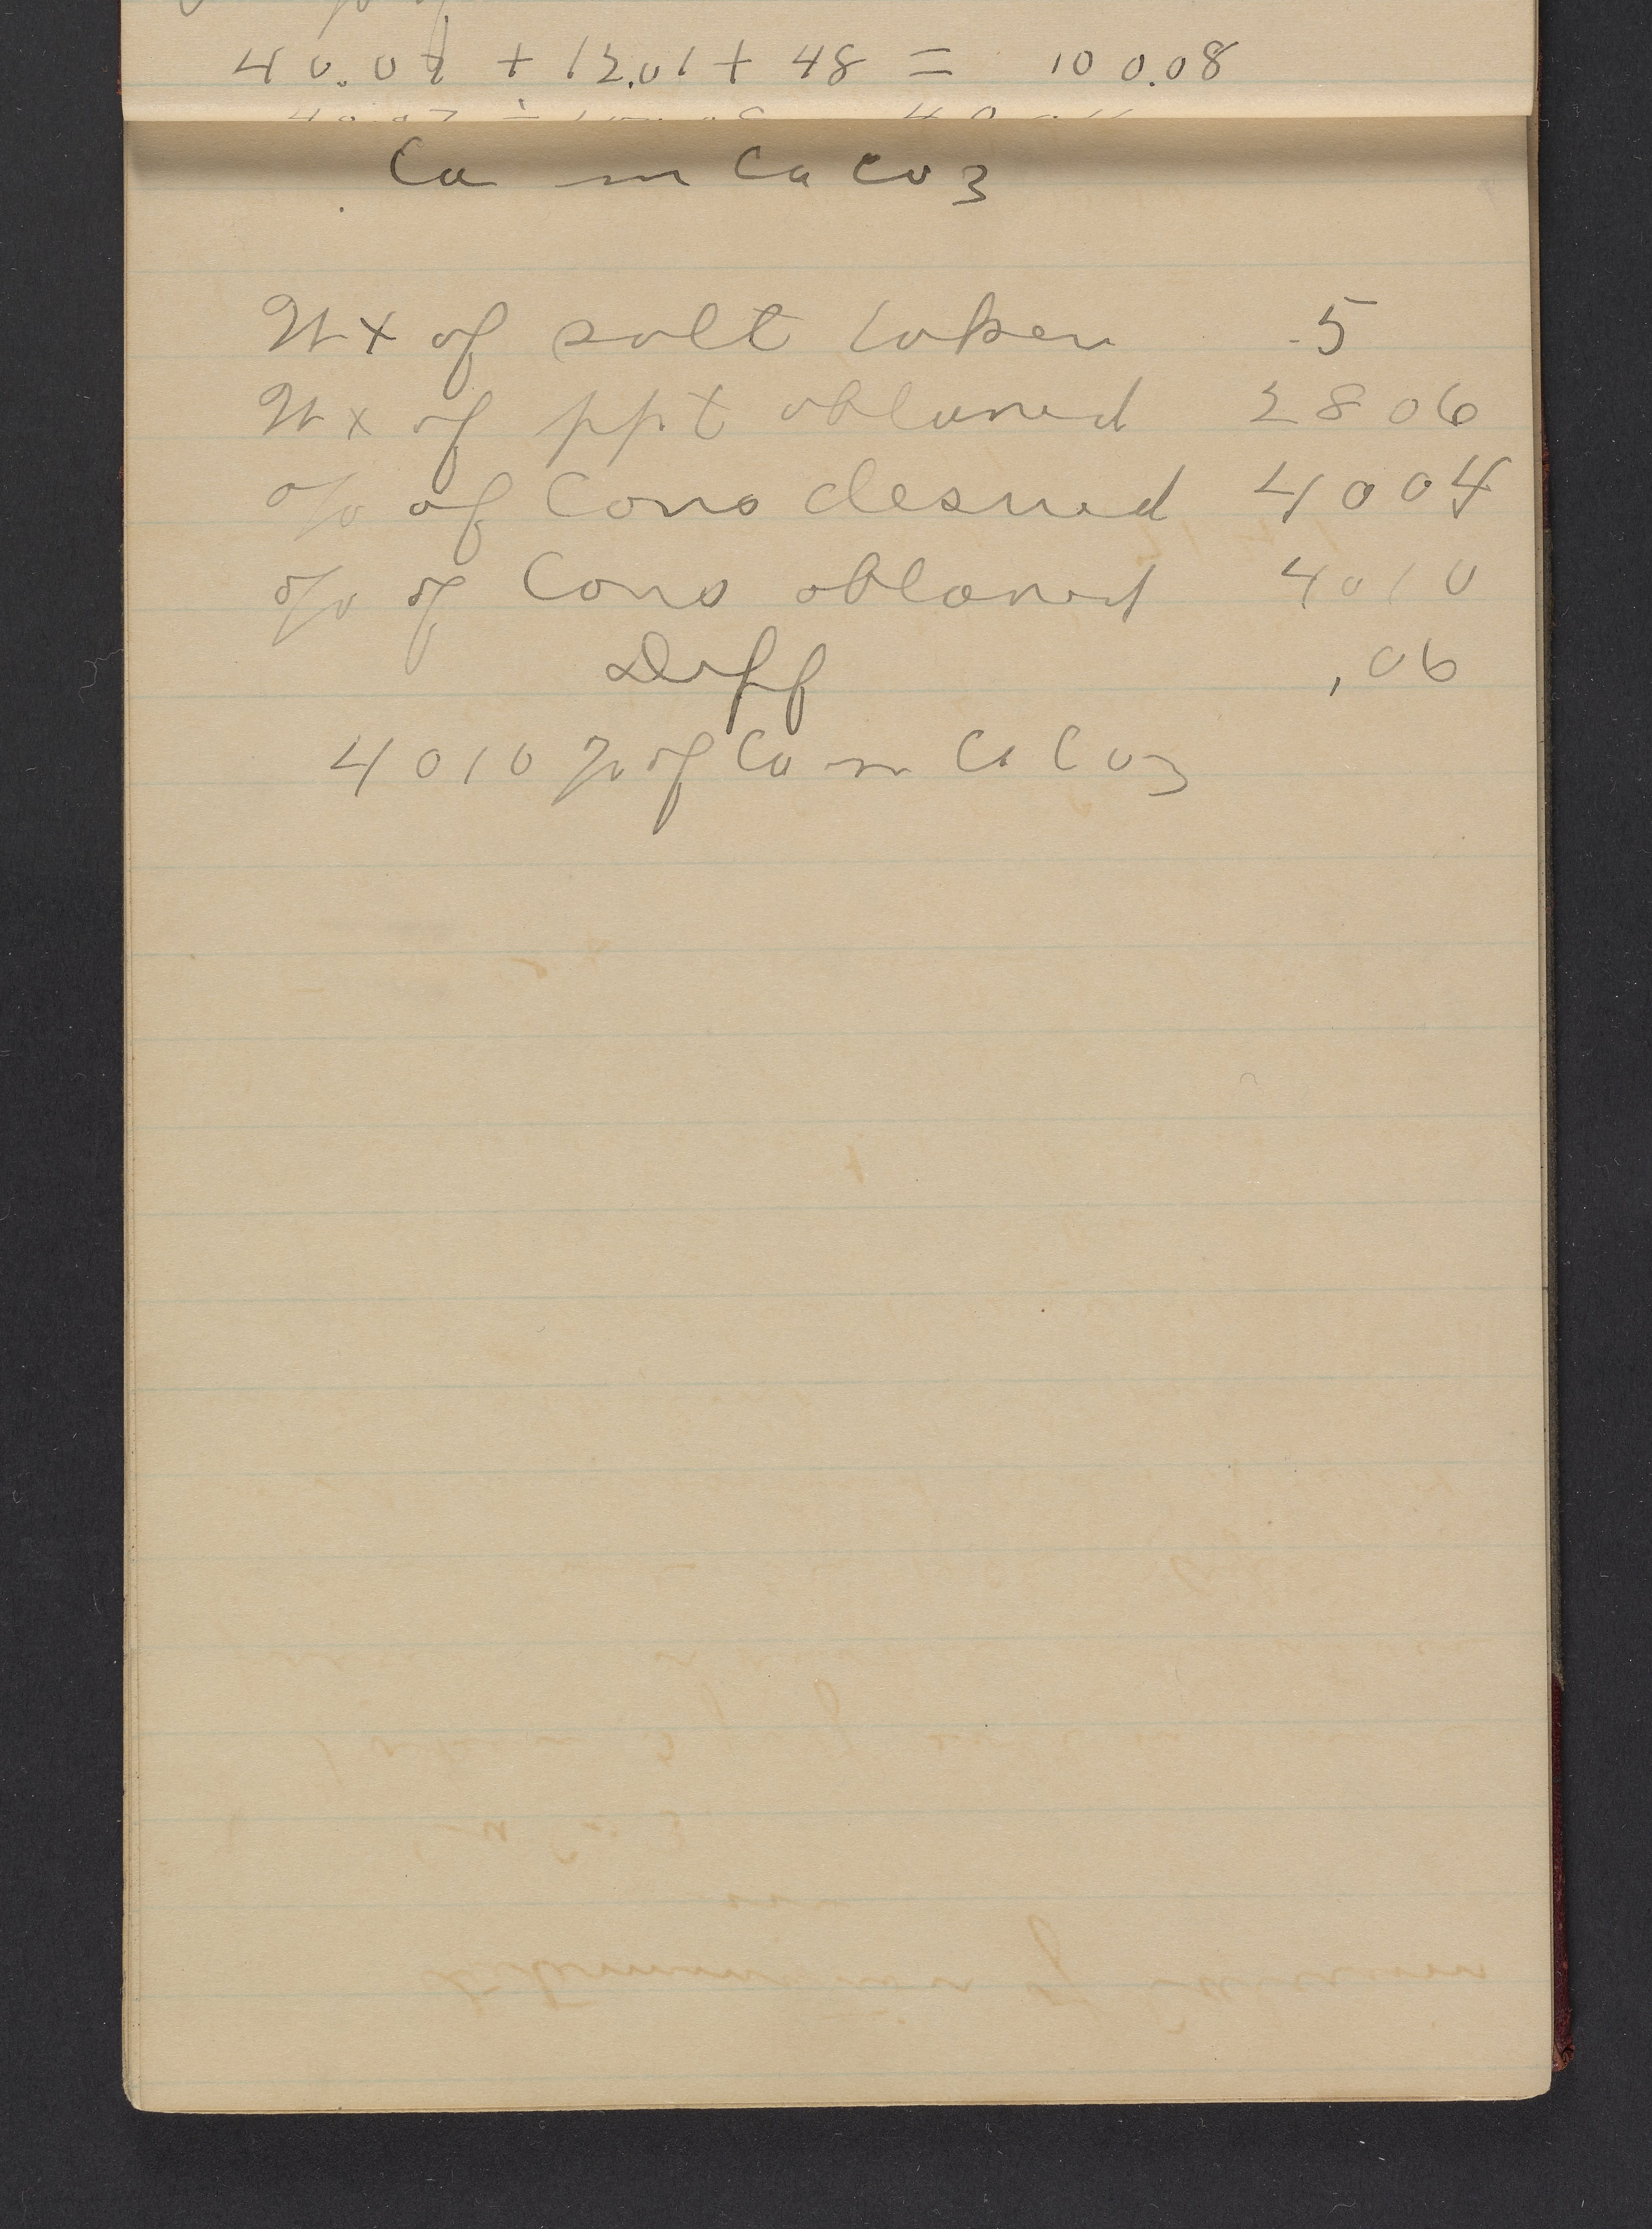 40.07 + 12.01 + 48 = 100.08
Ca in CaCO3
Wt of salt taken .5
Wt of ppt obtained 2806
% of Cons desired 4004
% of Cons obtained 4010
Diff .06
4010 % of Ca in CaCO3